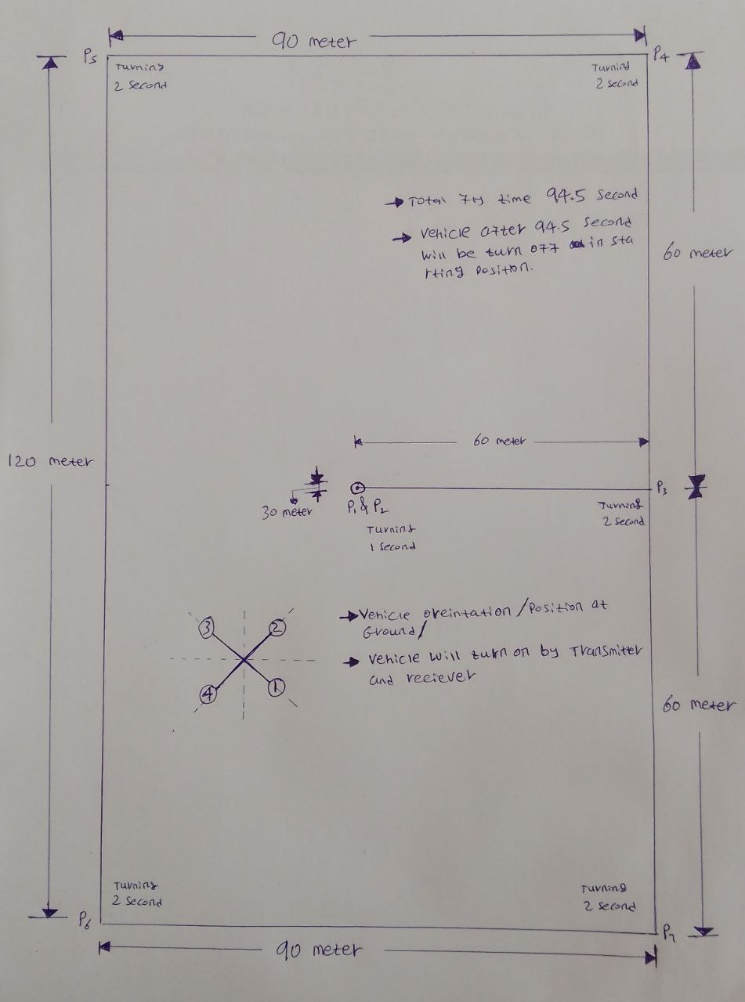 90 meter
P5
P4
Turning
2 Second
Turning
2 second
→ Total 7ly time 94.5 Second
→ Vehicle after 94.5 Second
will be turn off in sta
rting Position.
60 meter
60 meter
120 meter
30 meter
P1 & P2
P3
Turning
1 second
Turning
2 second
3
2
4
1
→ Vehicle oreintation / Position at
Ground/
→ Vehicle will turn on by Transmitter
and reciever
60 meter
Turning
2 second
Turning
2 second
P6
P7
90 meter